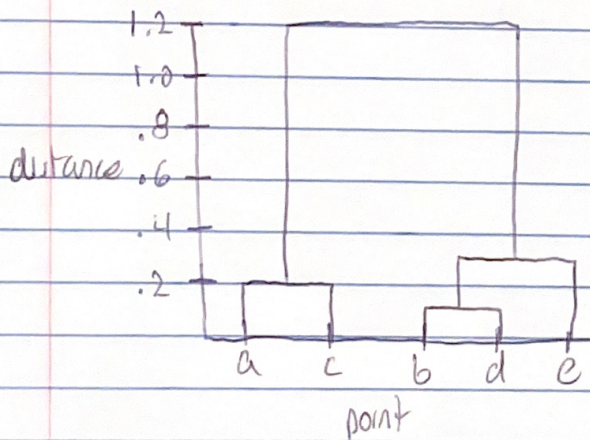 1.2
1.0
.8
distance .6
.4
.2
a c b d e
point